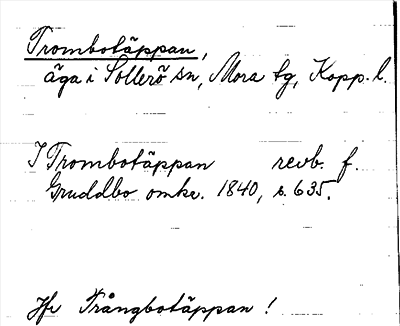 Trombotäppan,
äga i Sollerö sn, Mora tg, Kopp. l.
I Trombotäppan revb. f.
Gruddbo omkr. 1840, s. 635.
Jfr Trångbotäppan!